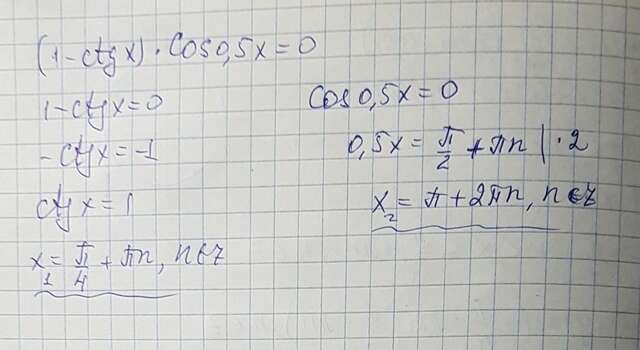 (1-ctgx)·cos0,5x=0
1-ctgx=0
-ctgx=-1
ctgx=1
x₁=π/4+πn, n∈z
cos0,5x=0
0,5x=π/2+πn |·2
x₂=π+2πn, n∈z